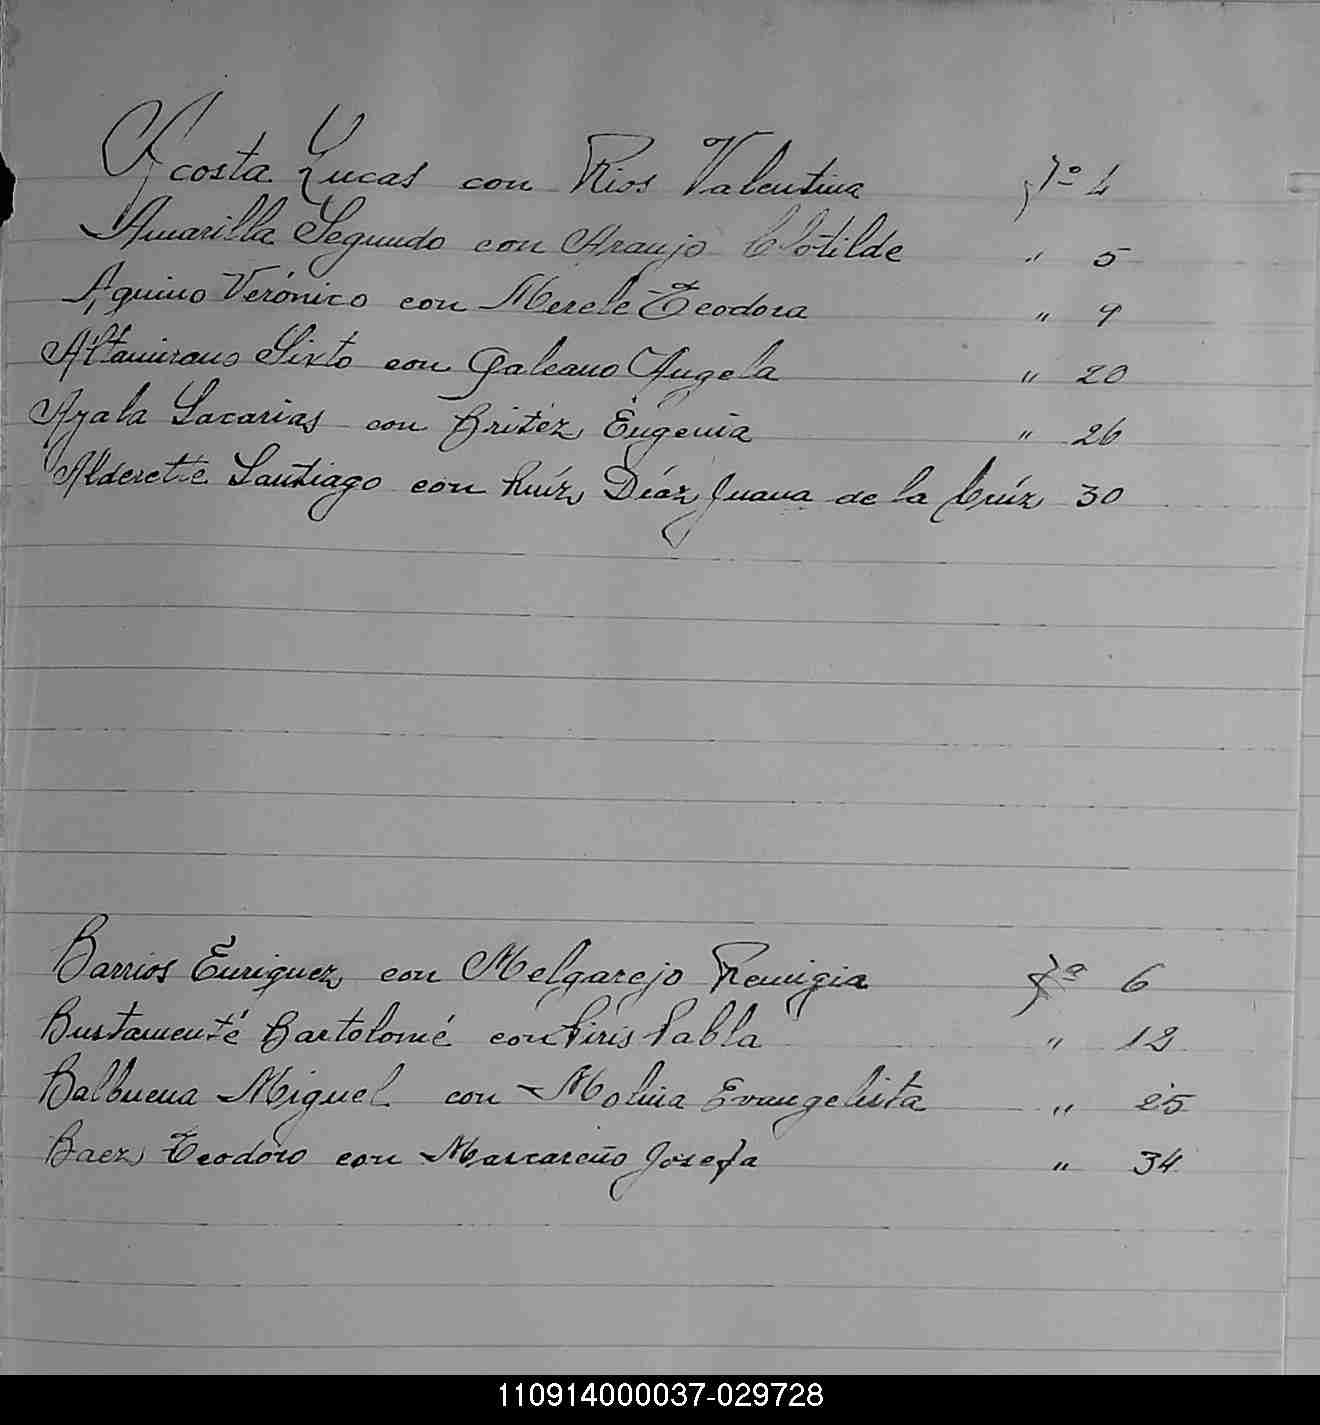 Acosta Lucas con Rios Valentina fº 4
Amarilla Segundo con Araujo Clotilde " 5
Aquino Verónico con Merele Teodora " 9
Altamirano Sixto con Galeano Angela " 20
Ayala Sacarias con Britéz Eugenia " 26
Alderette Santiago con Ruíz Díaz Juana de la Cruíz 30
Barrios Enriquez con Melgarejo Remigia fº 6
Bustamenté Bartolomé con Piris Pabla " 12
Balbuena Miguel con Molina Evangelista " 25
Baez Teodoro con Marcareño Josefa " 34
110914000037-029728